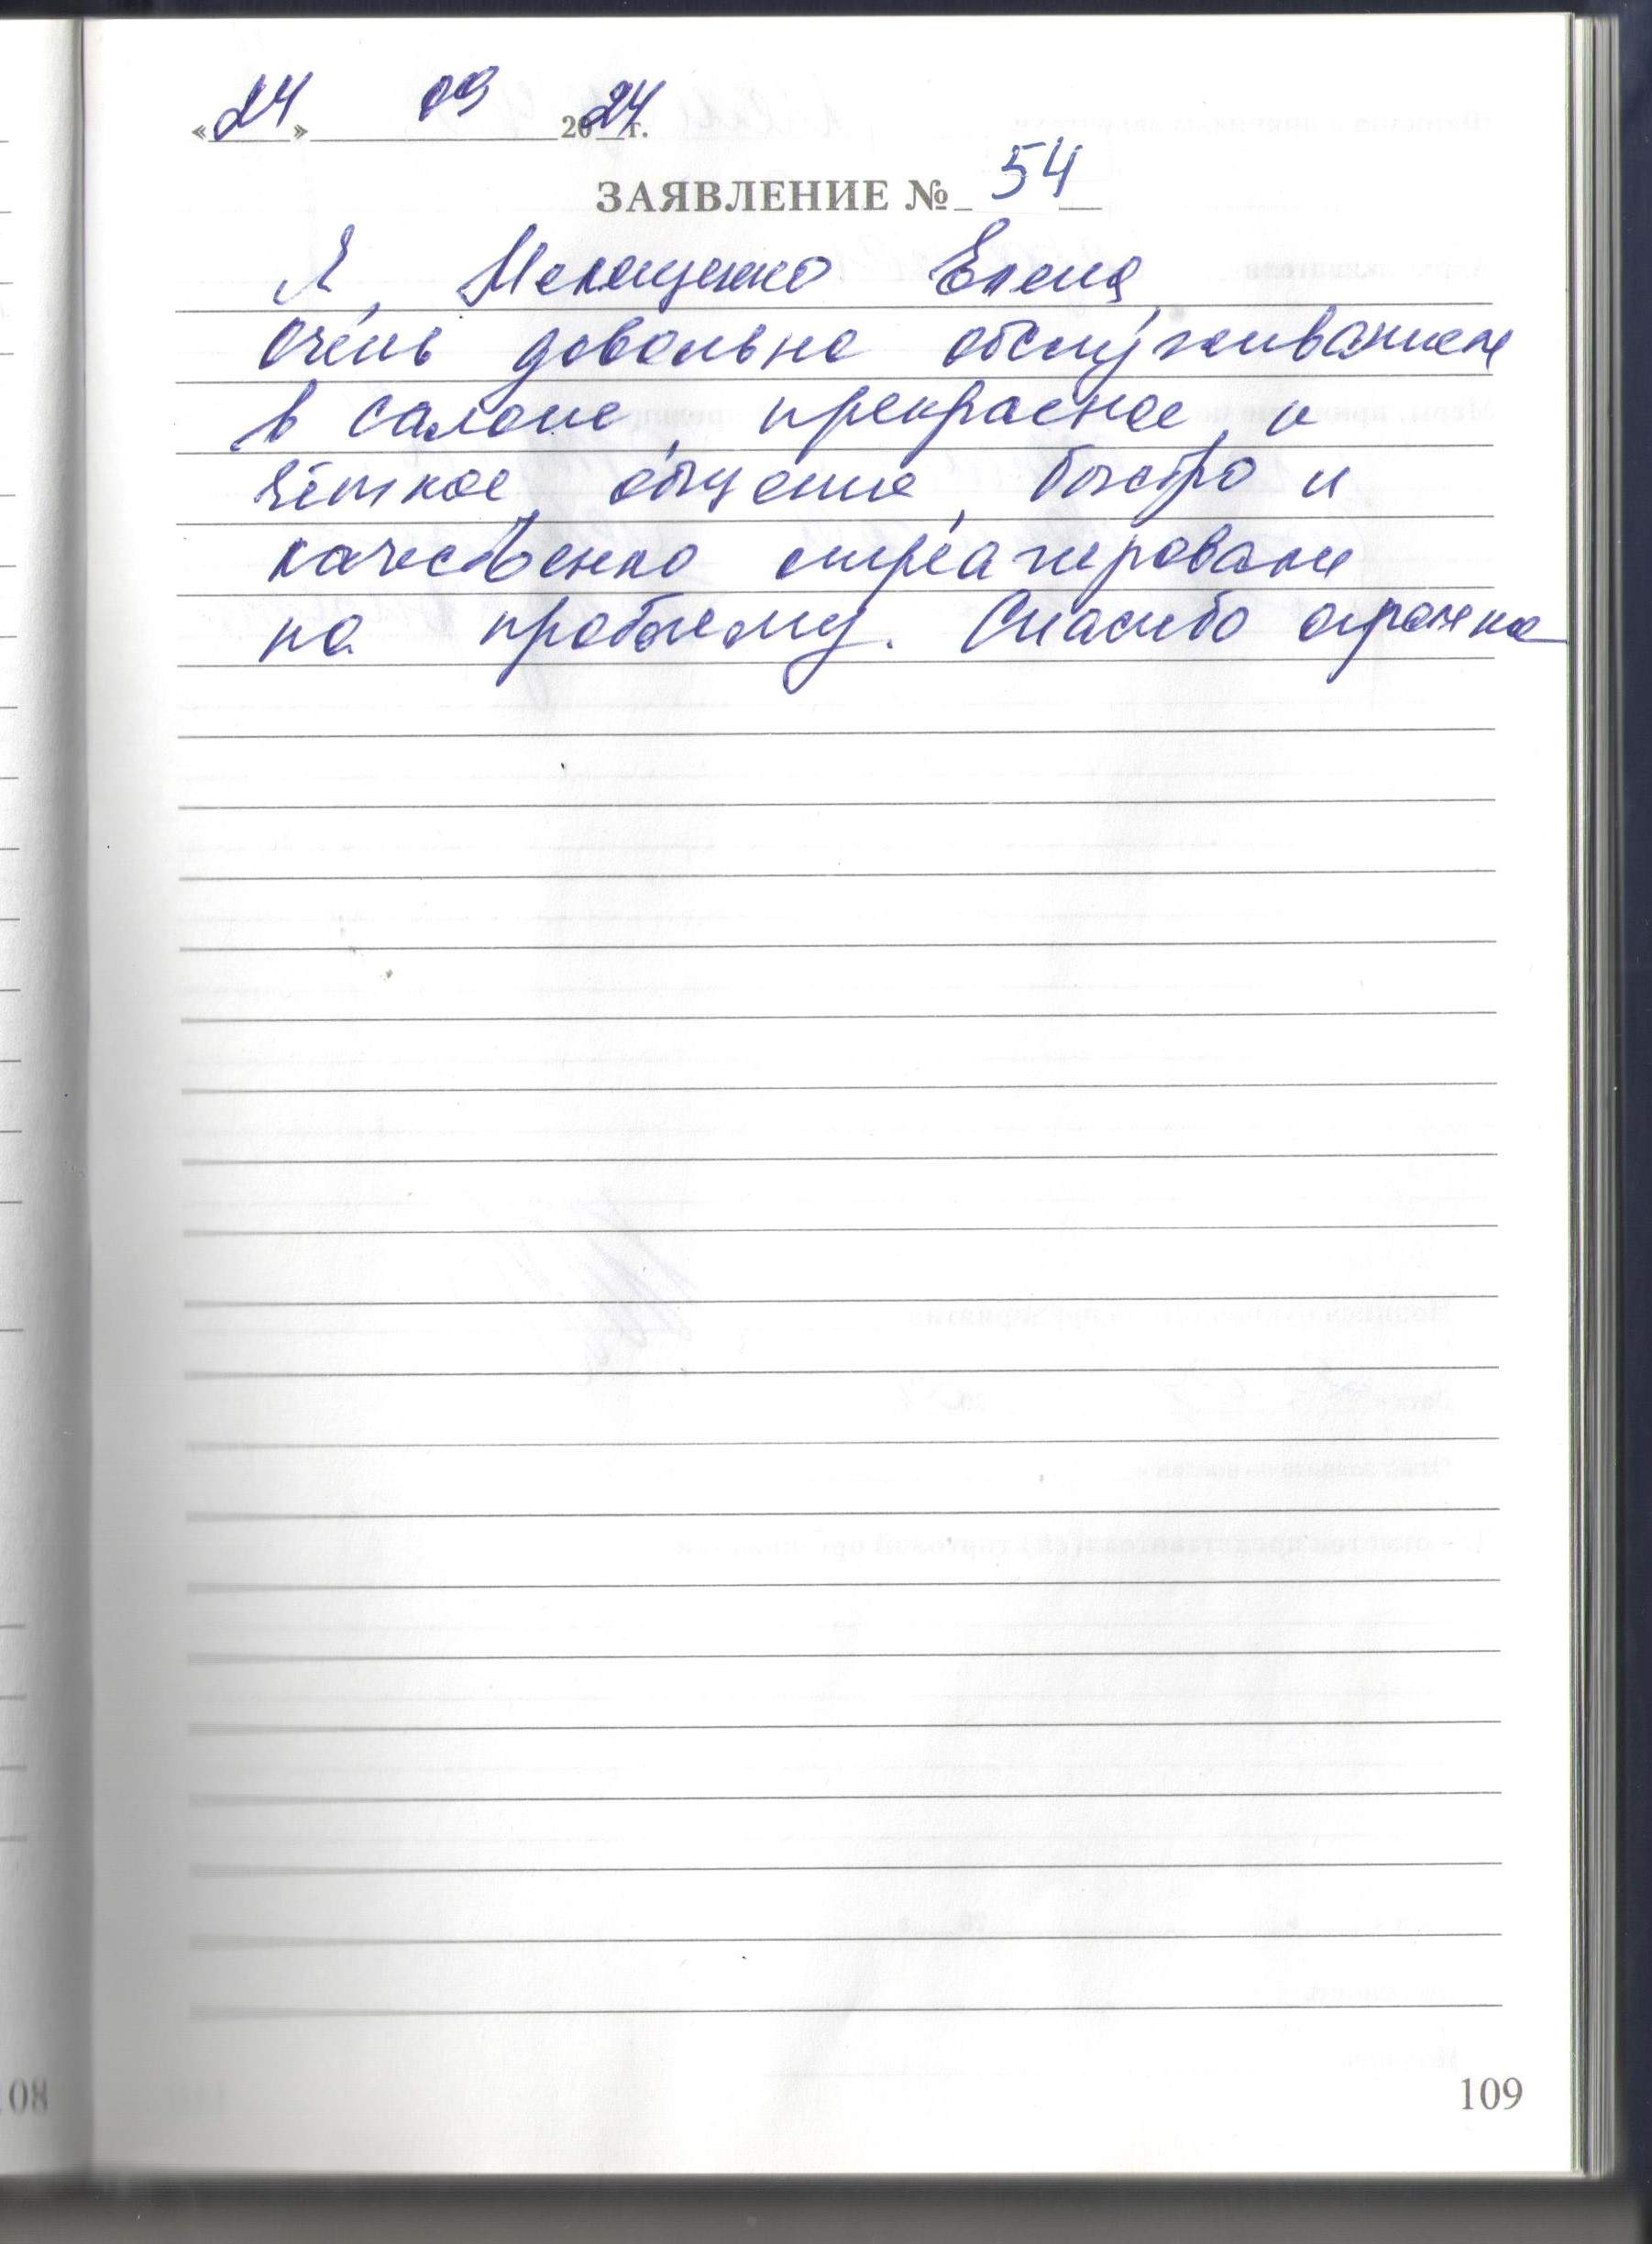 «24» 09 2024 г.
ЗАЯВЛЕНИЕ № 54
Я, Мелещенко Елена,
очень довольна обслуживанием
в салоне, прекрасное и
чёткое общение, быстро и
качественно отреагировали
на проблему. Спасибо огромное
08
109